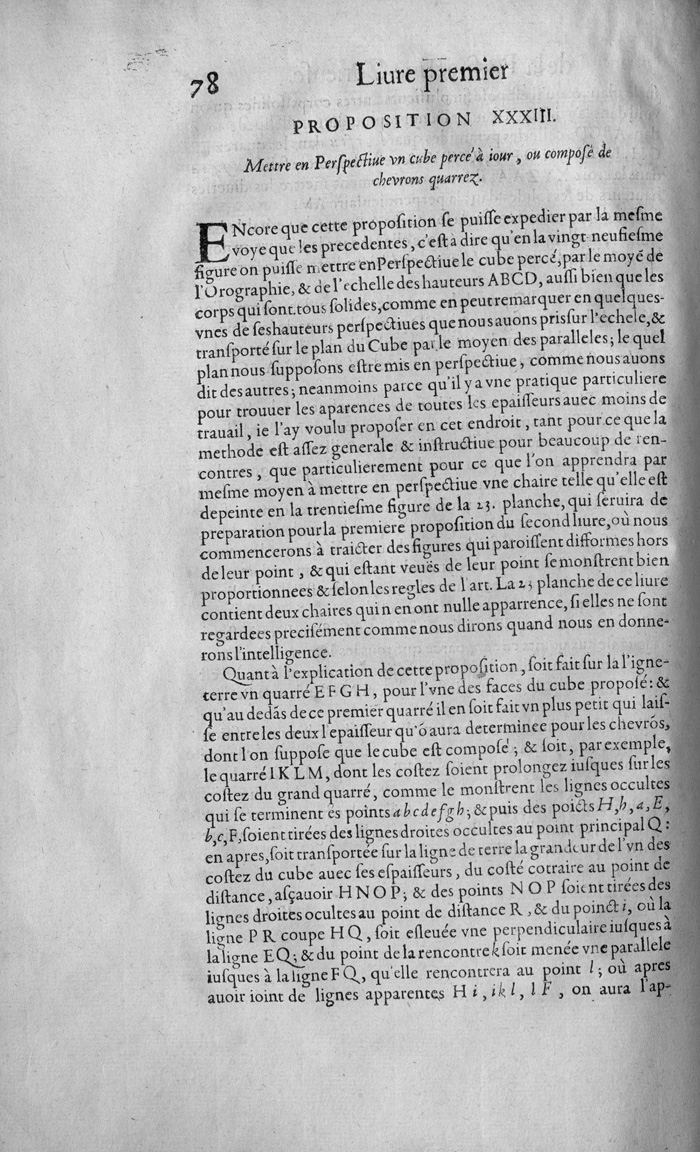 78 Liure premier
PROPOSITION XXXIII.
Mettre en Perſpectiue vn cube percé à iour, ou compoſé de
chevrons quarrez.
ENcore que cette propoſition ſe puiſſe expedier par la meſme
voye que les precedentes, c'eſt à dire qu'en la vingt neufieſme
figure on puiſſe mettre en Perſpectiue le cube percé, par le moyé de
l'Orographie, & de l'echelle des hauteurs ABCD, auſſi bien que les
corps qui ſont tous ſolides, comme en peut remarquer en quelques-
vnes de ſes hauteurs perſpectiues que nous auons pris ſur l'echele, &
tranſporté ſur le plan du Cube par le moyen des paralleles; le quel
plan nous ſuppoſons eſtre mis en perſpectiue, comme nous auons
dit des autres; neanmoins parce qu'il y a vne pratique particuliere
pour trouuer les aparences de toutes les epaiſſeurs auec moins de
trauail, ie l'ay voulu propoſer en cet endroit, tant pour ce que la
methode eſt aſſez generale & inſtructiue pour beaucoup de ren-
contres, que particulierement pour ce que l'on apprendra par
meſme moyen à mettre en perſpectiue vne chaire telle qu'elle eſt
depeinte en la trentieſme figure de la 23. planche, qui ſeruira de
preparation pour la premiere propoſition du ſecond liure, où nous
commencerons à traicter des figures qui paroiſſent difformes hors
de leur point, & qui eſtant veuës de leur point ſe monſtrent bien
proportionnees & ſelon les regles de l'art. La 23 planche de ce liure
contient deux chaires qui n en ont nulle apparrence, ſi elles ne ſont
regardees preciſément comme nous dirons quand nous en donne-
rons l'intelligence.
Quant à l'explication de cette propoſition, ſoit fait ſur la l'igne-
terre vn quarré EFGH, pour l'vne des faces du cube propoſé: &
qu'au dedãs de ce premier quarré il en ſoit fait vn plus petit qui laiſ-
ſe entre les deux l'epaiſſeur qu'õ aura determinee pour les chevrõs,
dont l'on ſuppoſe que le cube eſt compoſé; & ſoit, par exemple,
le quarré IKLM, dont les coſtez ſoient prolongez iuſques ſur les
coſtez du grand quarré, comme le monſtrent les lignes occultes
qui ſe terminent és points a b c d e f g h; & puis des poicts H, h, a, E,
b, c, F, ſoient tirées des lignes droites occultes au point principal Q:
en apres, ſoit tranſportée ſur la ligne de terre la grandeur de l'vn des
coſtez du cube auec ſes eſpaiſſeurs, du coſté cotraire au point de
diſtance, aſçauoir HNOP; & des points NOP ſoient tirées des
lignes droites ocultes au point de diſtance R, & du poinct i, où la
ligne PR coupe HQ, ſoit eſleuée vne perpendiculaire iuſques à
la ligne EQ; & du point de la rencontre k ſoit menée vne parallele
iuſques à la ligne FQ, qu'elle rencontrera au point l; où apres
auoir ioint de lignes apparentes H i, i k l, l F, on aura l'ap-